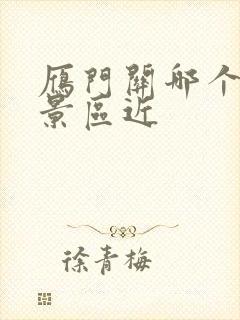 雁門關哪个
景區近
徐青梅